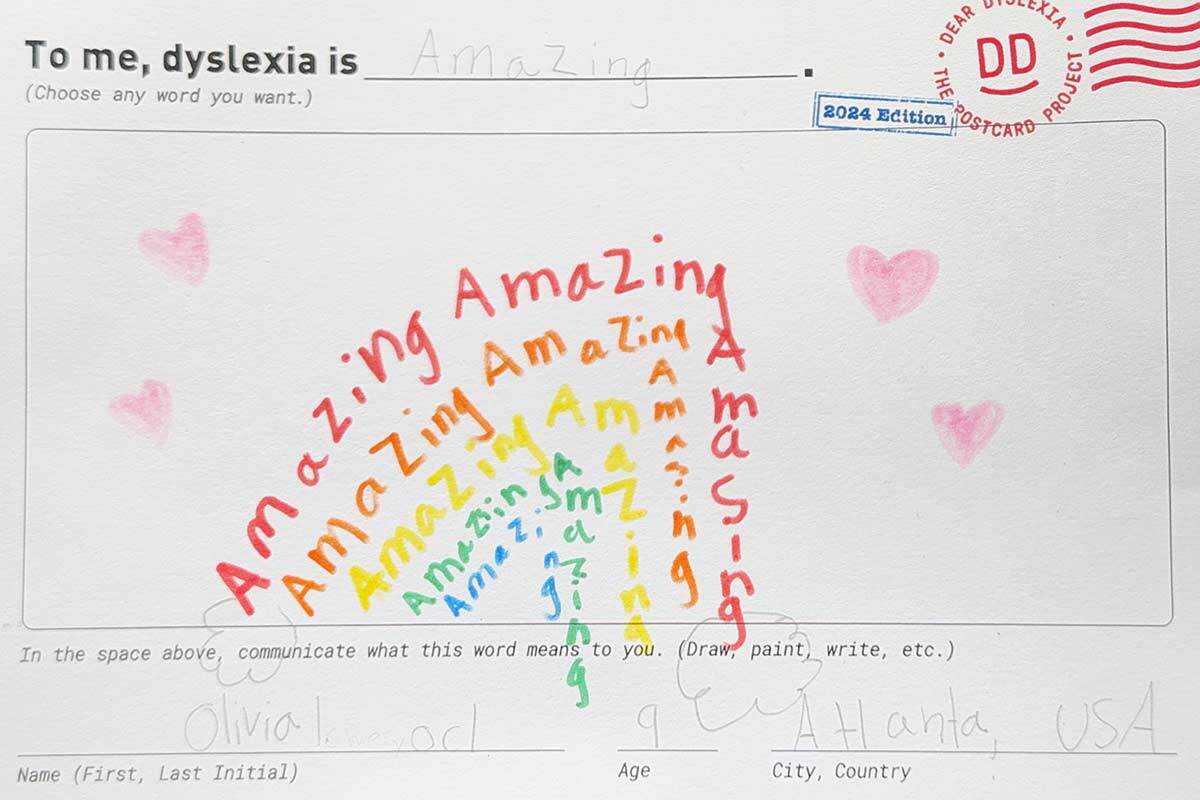 To me, dyslexia is Amazing.
(Choose any word you want.)
2024 Edition
• DEAR DYSLEXIA • THE POSTCARD PROJECT
DD
Amazing Amazing Amasing
Amazing Amazing Amazing
Amazing Amazing
Amazing Amazing
Amazing
In the space above, communicate what this word means to you. (Draw, paint, write, etc.)
Olivia 9 Atlanta, USA
Name (First, Last Initial) Age City, Country